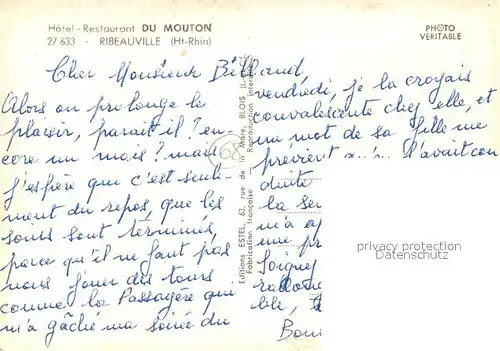 Hôtel - Restaurant DU MOUTON
27 633 - RIBEAUVILLE (Ht-Rhin)
PHOTO
VERITABLE
Cher Monsieur Billand,
Alors on prolonge le
plaisir, parait-il? en-
core un mois? mais
j'espère que c'est seule-
ment du repos, que les
soins sont terminés,
parce qu'il ne faut pas
nous jouer des tours
comme la Passagère qui
m'a gâché ma soirée du
68
Editions ESTEL, 63, rue de la Mare, BLOIS
Fabrication française Reproduction interdite
vendredi, je la croyais
convalescente chez elle, et
un mot de sa fille me
prévient qu' l'avait con
duite
la se
m'a a
une pr
Soignez
ble,
Bon
privacy protection
Datenschutz